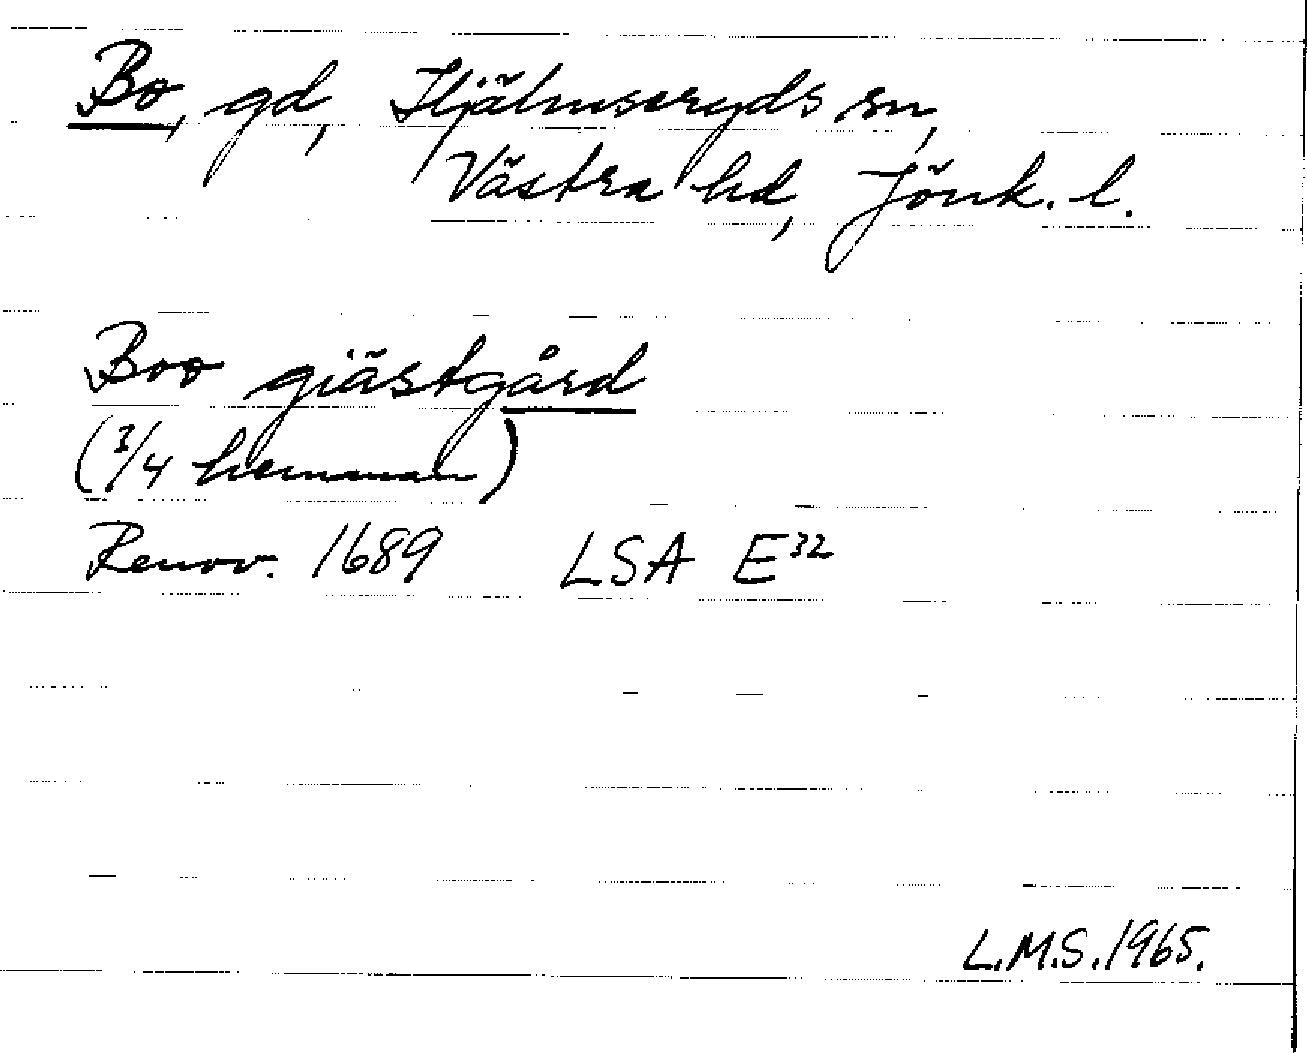 Bo, gd, Hjälmseryds sn,
Västra hd, Jönk. l.
Boo giästgård
(3/4 hemman)
Renov. 1689 LSA E32
L.M.S. 1965.